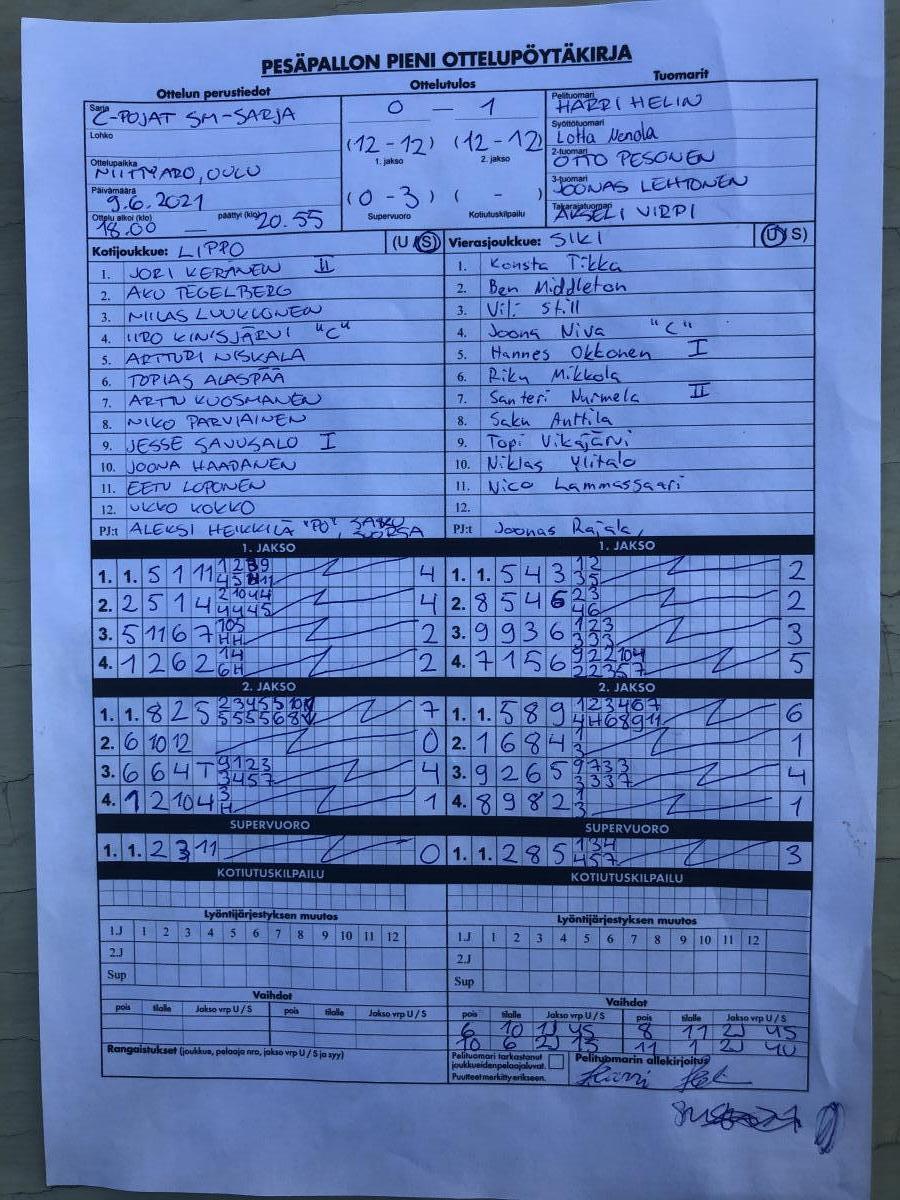 PESÄPALLON PIENI OTTELUPÖYTÄKIRJA
Ottelun perustiedot
Ottelutulos
Tuomarit
Sarja C-POJAT SM-SARJA
Lohko
Ottelupaikka NIITTYARO, OULU
Päivämäärä 9.6.2021
Ottelu alkoi (klo) 18.00 — päättyi (klo) 20.55
0 — 1
(12-12) (12-12)
1. jakso 2. jakso
(0-3) ( - )
Supervuoro Kotiutuskilpailu
Pelituomari HARRI HELIN
Syöttötuomari Lotta Nenola
2-tuomari OTTO PESONEN
3-tuomari JOONAS LEHTONEN
Takarajatuomari AKSELI VIRPI
Kotijoukkue: LIPPO (U S)
1. JORI KERÄNEN II
2. AKU TEGELBERG
3. NIILAS LUUKKONEN
4. IIRO KINISJÄRVI "C"
5. ARTTURI NISKALA
6. TOPIAS ALASPÄÄ
7. ARTTU KUOSMANEN
8. NIKO PARVIAINEN
9. JESSE SAVUSALO I
10. JOONA HAAPANEN
11. EETU LOPONEN
12. UKKO KOKKO
PJ:t ALEKSI HEIKKILÄ "PO",
Vierasjoukkue: SIKI (U S)
1. Konsta Tikka
2. Ben Middleton
3. Vili Still
4. Joona Niva "C"
5. Hannes Okkonen I
6. Riku Mikkola
7. Santeri Nurmela II
8. Saku Anttila
9. Topi Vikajärvi
10. Niklas Ylitalo
11. Nico Lammassaari
12.
PJ:t Joonas Rajala,
1. JAKSO
1. 1. 5 1 11 4
2. 2 5 1 4 4
3. 5 11 6 7 2
4. 1 2 6 2 2
1. JAKSO
1. 1. 5 4 3 12 35 2
2. 8 5 4 6 23 46 2
3. 9 9 3 6 123 333 3
4. 7 1 5 6 922104 22357 5
2. JAKSO
1. 1. 8 2 5 7
2. 6 10 12 0
3. 6 6 4 T 9123 3457 4
4. 1 2 10 4 3 H 1
2. JAKSO
1. 1. 5 8 9 123467 4H68911 6
2. 1 6 8 4 1 3 1
3. 9 2 6 5 9733 3337 4
4. 8 9 8 2 1 3 1
SUPERVUORO
1. 1. 2 3 11 0
SUPERVUORO
1. 1. 2 8 5 134 457 3
KOTIUTUSKILPAILU
KOTIUTUSKILPAILU
Lyöntijärjestyksen muutos
1.J 1 2 3 4 5 6 7 8 9 10 11 12
2.J
Sup
Lyöntijärjestyksen muutos
1.J 1 2 3 4 5 6 7 8 9 10 11 12
2.J
Sup
Vaihdot
pois tilalle Jakso vrp U / S pois tilalle Jakso vrp U / S
Vaihdot
pois tilalle Jakso vrp U / S pois tilalle Jakso vrp U / S
6 10 1J 4S 8 11 2J 4S
10 6 2J 1S 11 1 2J 4U
Rangaistukset (joukkue, pelaaja nro, jakso vrp U / S ja syy)
Pelituomari tarkastanut
joukkueiden pelaajaluvat.
Puutteet merkitty erikseen.
Pelituomarin allekirjoitus